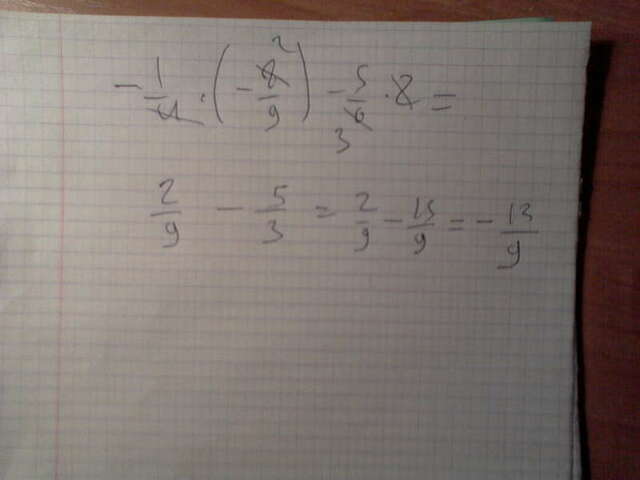 -1/4 · (-8/9) - 5/6 · 2 =
2
3
2/9 - 5/3 = 2/9 - 15/9 = -13/9